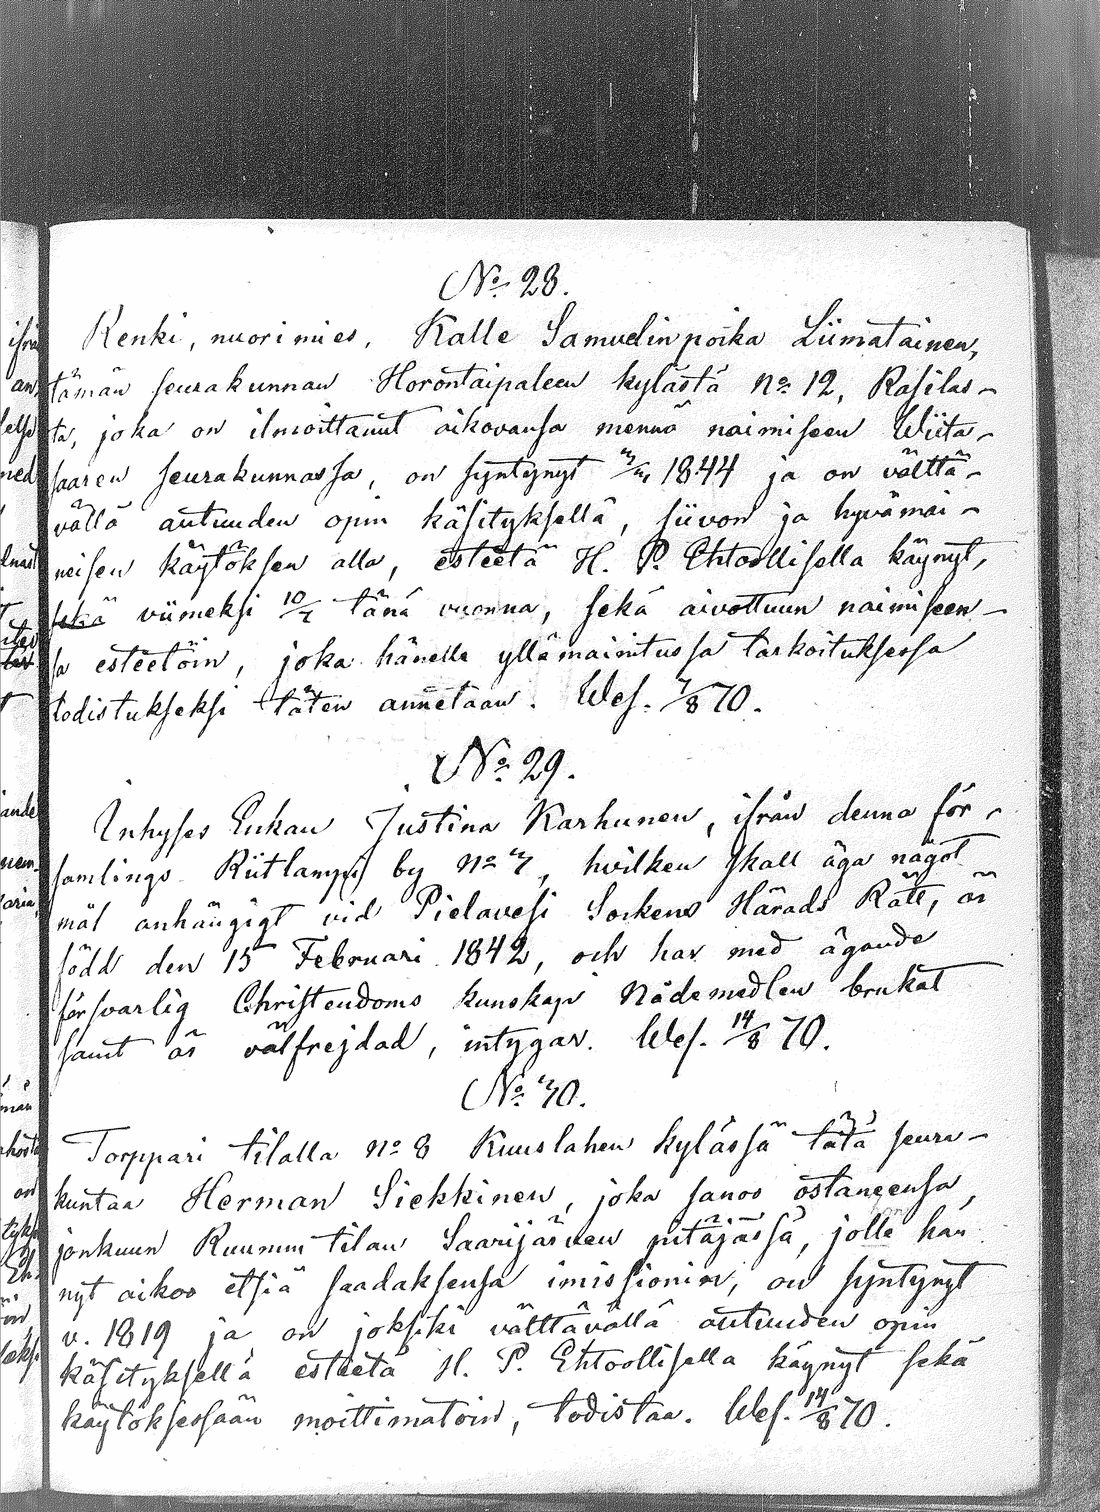 No 28.
Renki, nuorimies, Kalle Samuelinpoika Liimatainen,
tämän seurakunnan Horontaipaleen kylästä No 12, Rasilas-
ta, joka on ilmoittanut aikovansa mennä naimiseen Wiita-
saaren seurakunnassa, on syntynyt 1844 ja on välttä-
vällä autuuden opin käsityksellä, siivon ja hyvämai-
neisen käytöksen alla, esteetä H. P. Ehtoollisella käynyt,
sekä viimeksi 10/7 tänä vuonna, sekä aivottuun naimiseen-
sa esteetöin, joka hänelle yllämainitussa tarkoituksessa
todistukseksi täten annetaan. Wes. 7/8 70.
No 29.
Inhyses Enkan Justina Karhunen, ifrån denna för-
samlings Riitlampi by No 3, hvilken skall äga något
mål anhängigt vid Pielavesi Sockens Härads Rätt, är
född den 15 Februari 1842, och har med ägande
försvarlig Christendoms kunskap Nådemedlen brukat
samt är välfrejdad, intygar. Wes. 14/8 70.
No 30.
Torppari tilalla No 8 Kuuslahen kylässä tätä seura-
kuntaa Herman Siekkinen, joka sanoo ostaneensa
jonkuun Ruunun tilan Saarijärven pitäjässä, jolle hän
nyt aikoo etsiä saadaksensa imissionin, on syntynyt
v. 1819 ja on joksiki välttävällä autuuden opin
käsityksellä esteetä H. P. Ehtoollisella käynyt sekä
käytöksessään moittimatoin, todistaa. Wes. 14/8 70.